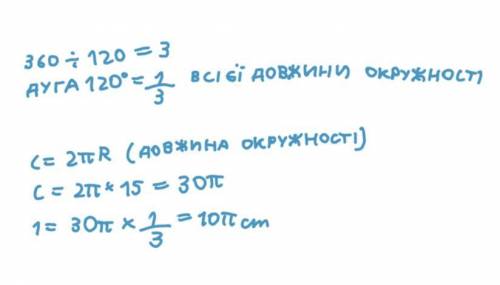 360 ÷ 120 = 3
ДУГА 120° = 1/3 ВСІЄЇ ДОВЖИНИ ОКРУЖНОСТІ
C = 2πR (ДОВЖИНА ОКРУЖНОСТІ)
C = 2π * 15 = 30π
1 = 30π × 1/3 = 10π cm